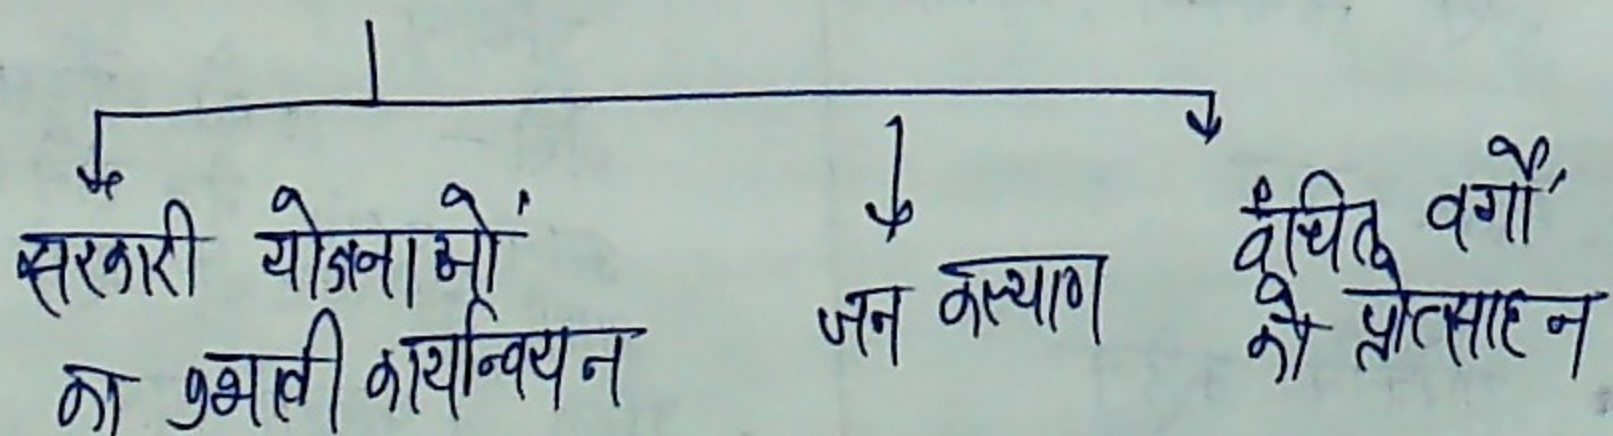 सरकारी योजनाओं
का प्रभावी कार्यान्वियन
जन कल्याण
वंचित वर्गों
को प्रोत्साहन